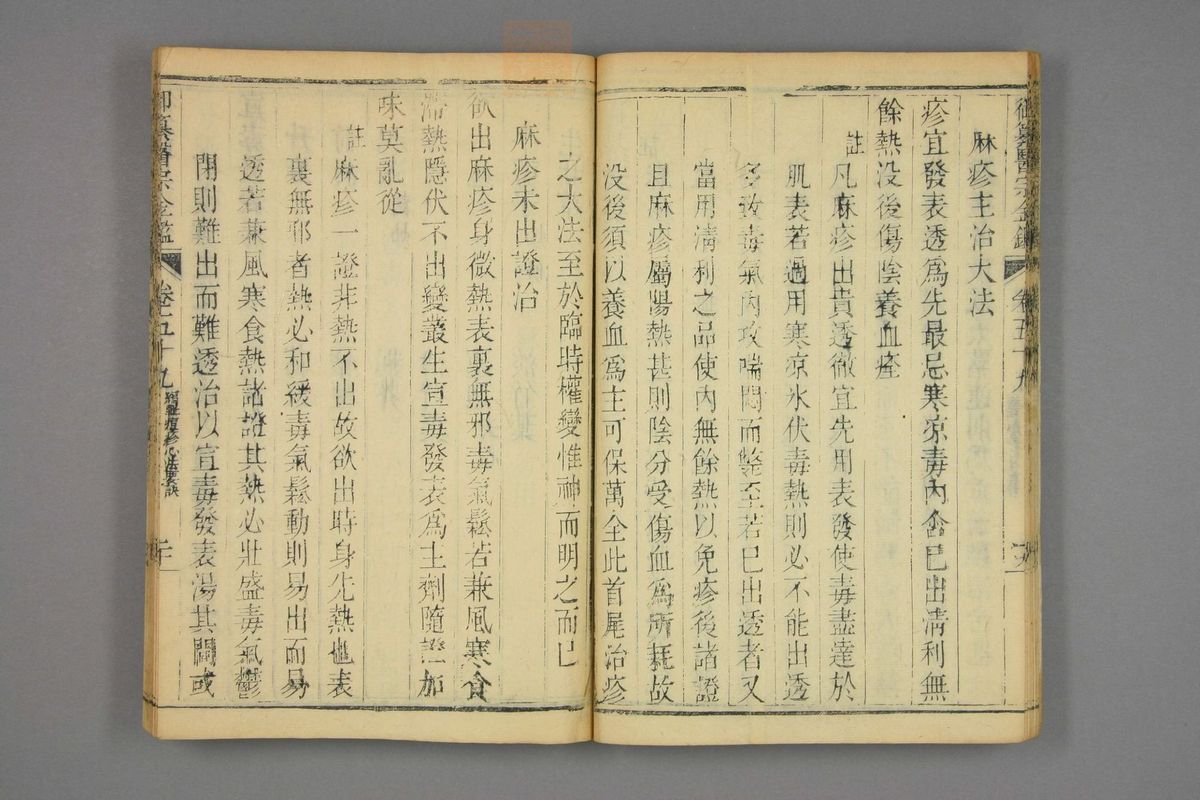 麻疹主治大法
疹宜發表透為先最忌寒涼毒內含已出清利無
餘熱沒後傷陰養血痊
註
凡麻疹出貴透徹宜先用表發使毒盡達於
肌表若過用寒涼氷伏毒熱則必不能出透
多致毒氣內攻喘悶而斃至若已出透者又
當用清利之品使內無餘熱以免疹後諸證
且麻疹屬陽熱甚則陰分受傷血為所耗故
没後須以養血為主可保萬全此首尾治疹
之大法至於臨時權變惟神而明之而已
麻疹未出證治
欲出麻疹身微熱表裏無邪毒氣鬆若兼風寒食
滯熱隱伏不出變叢生宣毒發表為主劑隨證加
味莫亂從
註
麻疹一證非熱不出故欲出時身先熱也表
裏無邪者熱必和緩毒氣鬆動則易出而易
透若兼風寒食熱諸證其熱必壯盛毒氣鬱
閉則難出而難透治以宣毒發表湯其間或
御纂醫宗金鑑
卷五十九